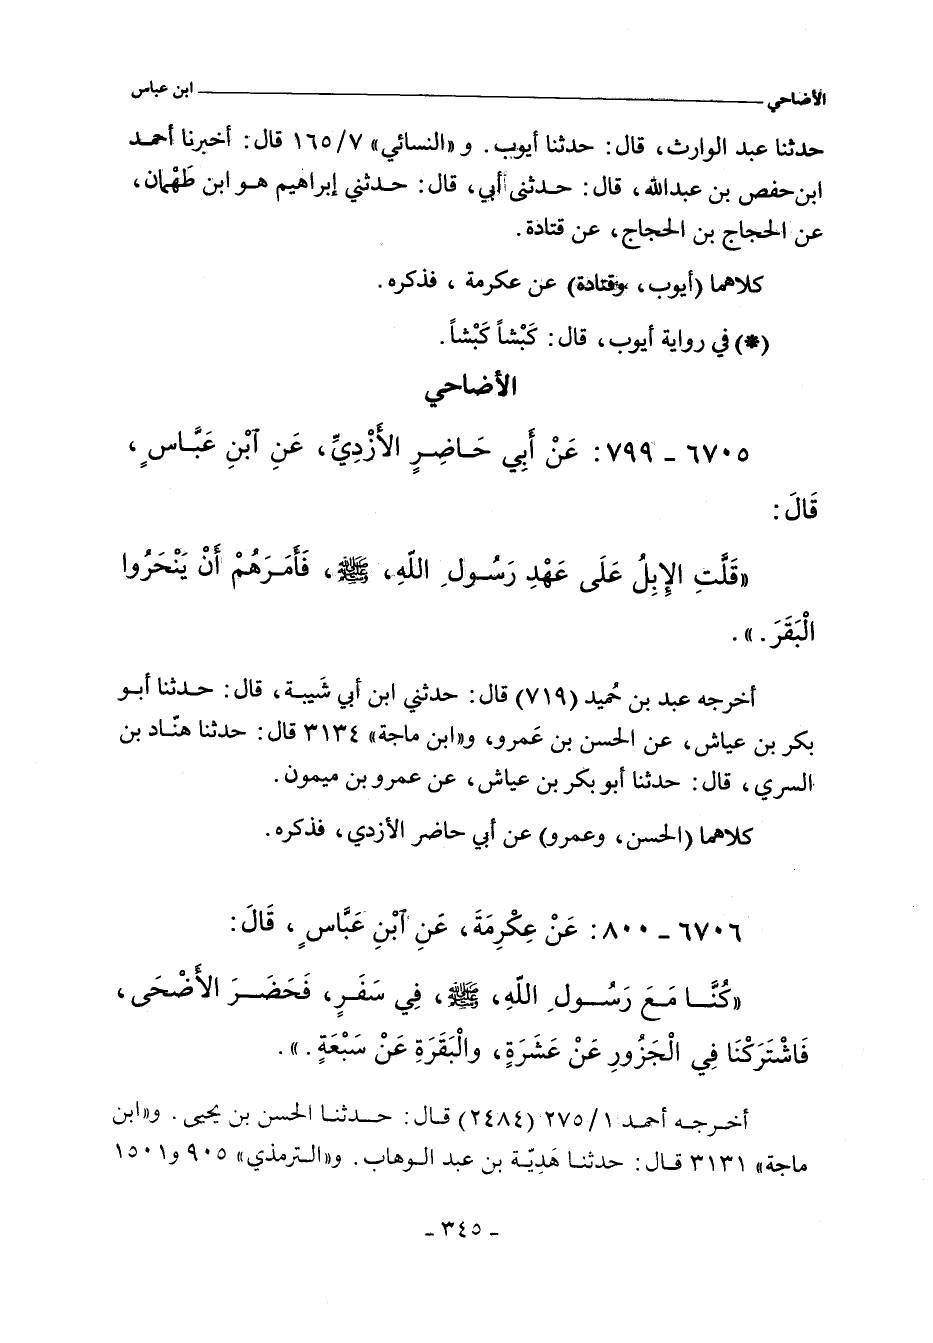 الأضاحي ــــــــــــــــــــــــــــــــــــــــ ابن عباس
حدثنا عبد الوارث، قال: حدثنا أيوب. و«النسائي» ١٦٥/٧ قال: أخبرنا أحمد
ابن حفص بن عبدالله، قال: حدثني أبي، قال: حدثني إبراهيم هو ابن طَهْمان،
عن الحجاج بن الحجاج، عن قتادة.
كلاهما (أيوب، وقتادة) عن عكرمة ، فذكره.
(*) في رواية أيوب، قال: كَبْشاً كَبْشاً.
الأضاحي
٦٧٠٥ ـ ٧٩٩: عَنْ أَبِي حَاضِرٍ الأَزْدِيِّ، عَنِ آبْنِ عَبَّاسٍ،
قَالَ:
«قَلَّتِ الإِبِلُ عَلَى عَهْدِ رَسُولِ اللّهِ، ﷺ، فَأَمَرَهُمْ أَنْ يَنْحَرُوا
الْبَقَرَ.».
أخرجه عبد بن حُميد (٧١٩) قال: حدثني ابن أبي شَيبة، قال: حدثنا أبو
بكر بن عياش، عن الحسن بن عَمرو، و«ابن ماجة» ٣١٣٤ قال: حدثنا هنّاد بن
السري، قال: حدثنا أبو بكر بن عياش، عن عمرو بن ميمون.
كلاهما (الحسن، وعمرو) عن أبي حاضر الأزدي، فذكره.
٦٧٠٦ ـ ٨٠٠: عَنْ عِكْرِمَةَ، عَنِ آبْنِ عَبَّاسٍ، قَالَ:
«كُنَّا مَعَ رَسُولِ اللّهِ، ﷺ، فِي سَفَرٍ، فَحَضَرَ الأَضْحَى،
فَاشْتَرَكْنَا فِي الْجَزُورِ عَنْ عَشَرَةٍ، والْبَقَرَةِ عَنْ سَبْعَةٍ.».
أخرجه أحمد ٢٧٥/١ (٢٤٨٤) قال: حدثنا الحسن بن يحيى. و«ابن
ماجة» ٣١٣١ قال: حدثنا هَدِيّة بن عبد الوهاب. و«الترمذي» ٩٠٥ و١٥٠١
ـ ٣٤٥ ـ